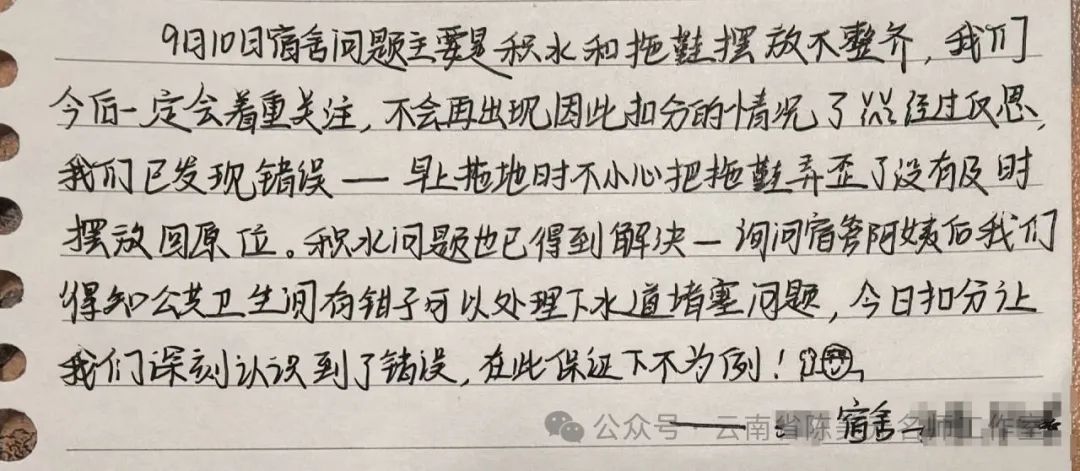 9月10日宿舍问题主要是积水和拖鞋摆放不整齐,我们
今后一定会着重关注,不会再出现因此扣分的情况了 经过反思,
我们已发现错误——早上拖地时不小心把拖鞋弄歪了没有及时
摆放回原位。积水问题也已得到解决—询问宿管阿姨后我们
得知公共卫生间有钳子可以处理下水道堵塞问题,今日扣分让
我们深刻认识到了错误,在此保证下不为例!
—— 宿舍
公众号·云南省陈 名师工作室